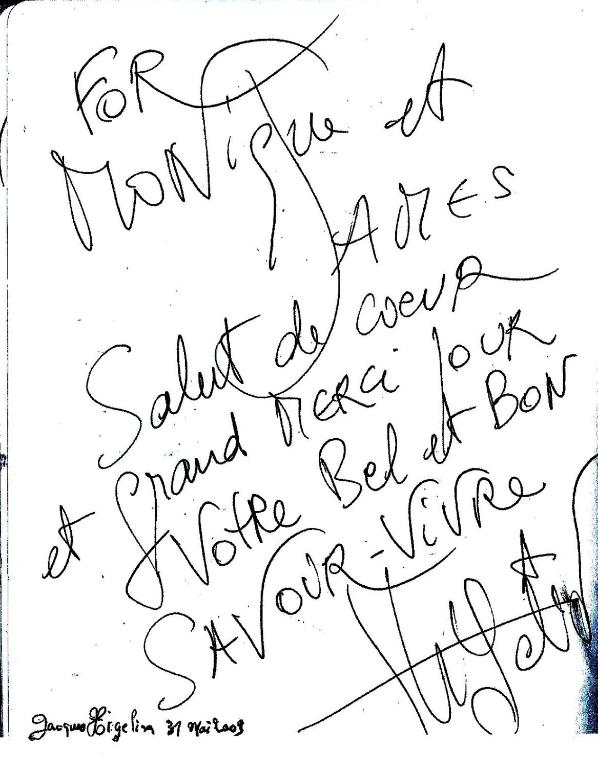 FOR
MONique et
JAMES
Salut de coeur
et grand MERCi pour
Votre Bel et BON
SAVOUR-ViVRe
Higelin
Jacques Higelin 31 Mai 2003